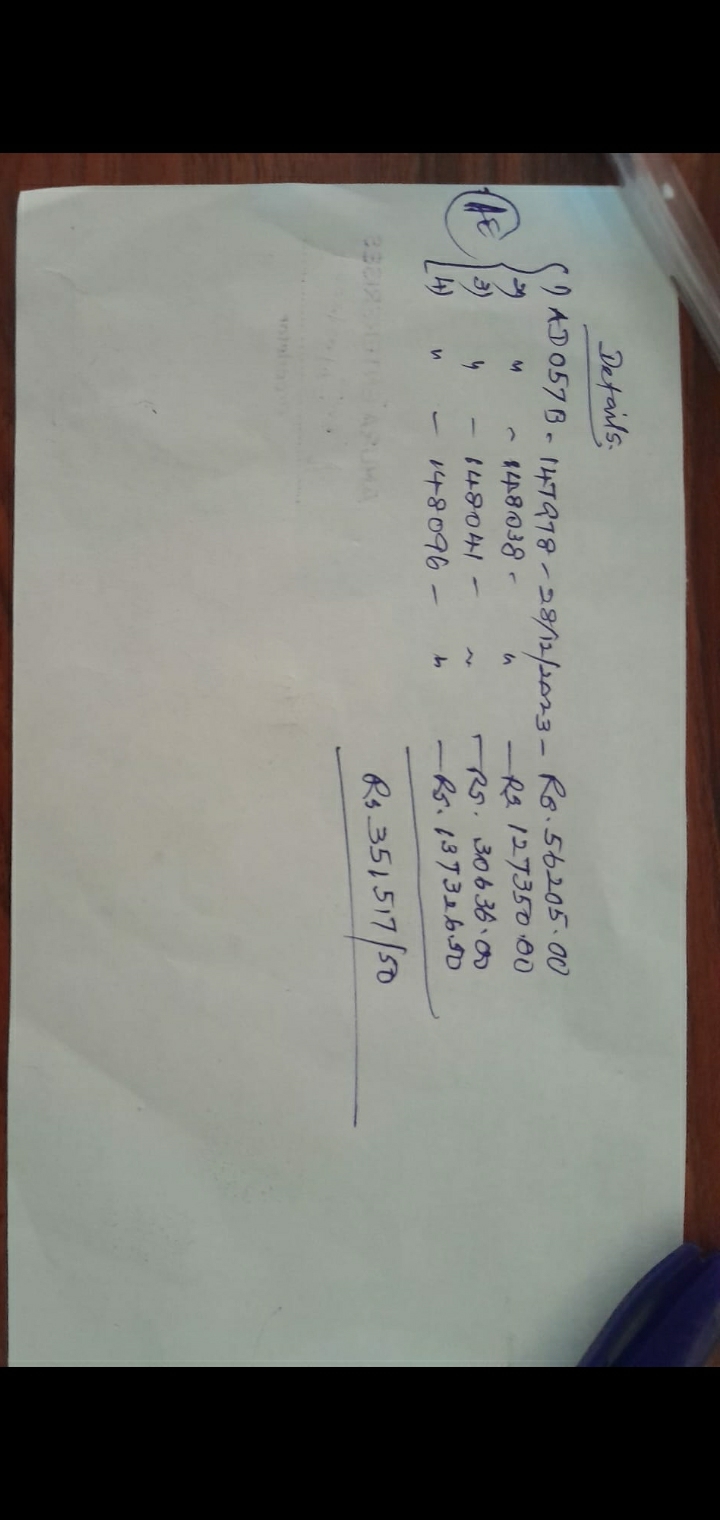 Details.
1) AD057B - 147978 - 28/12/2023 - Rs. 56205.00
2) " - 148038 - " - Rs. 127350.00
3) " - 148041 - " - Rs. 30636.00
4) " - 148096 - " - Rs. 137326.50
Rs 351517/50